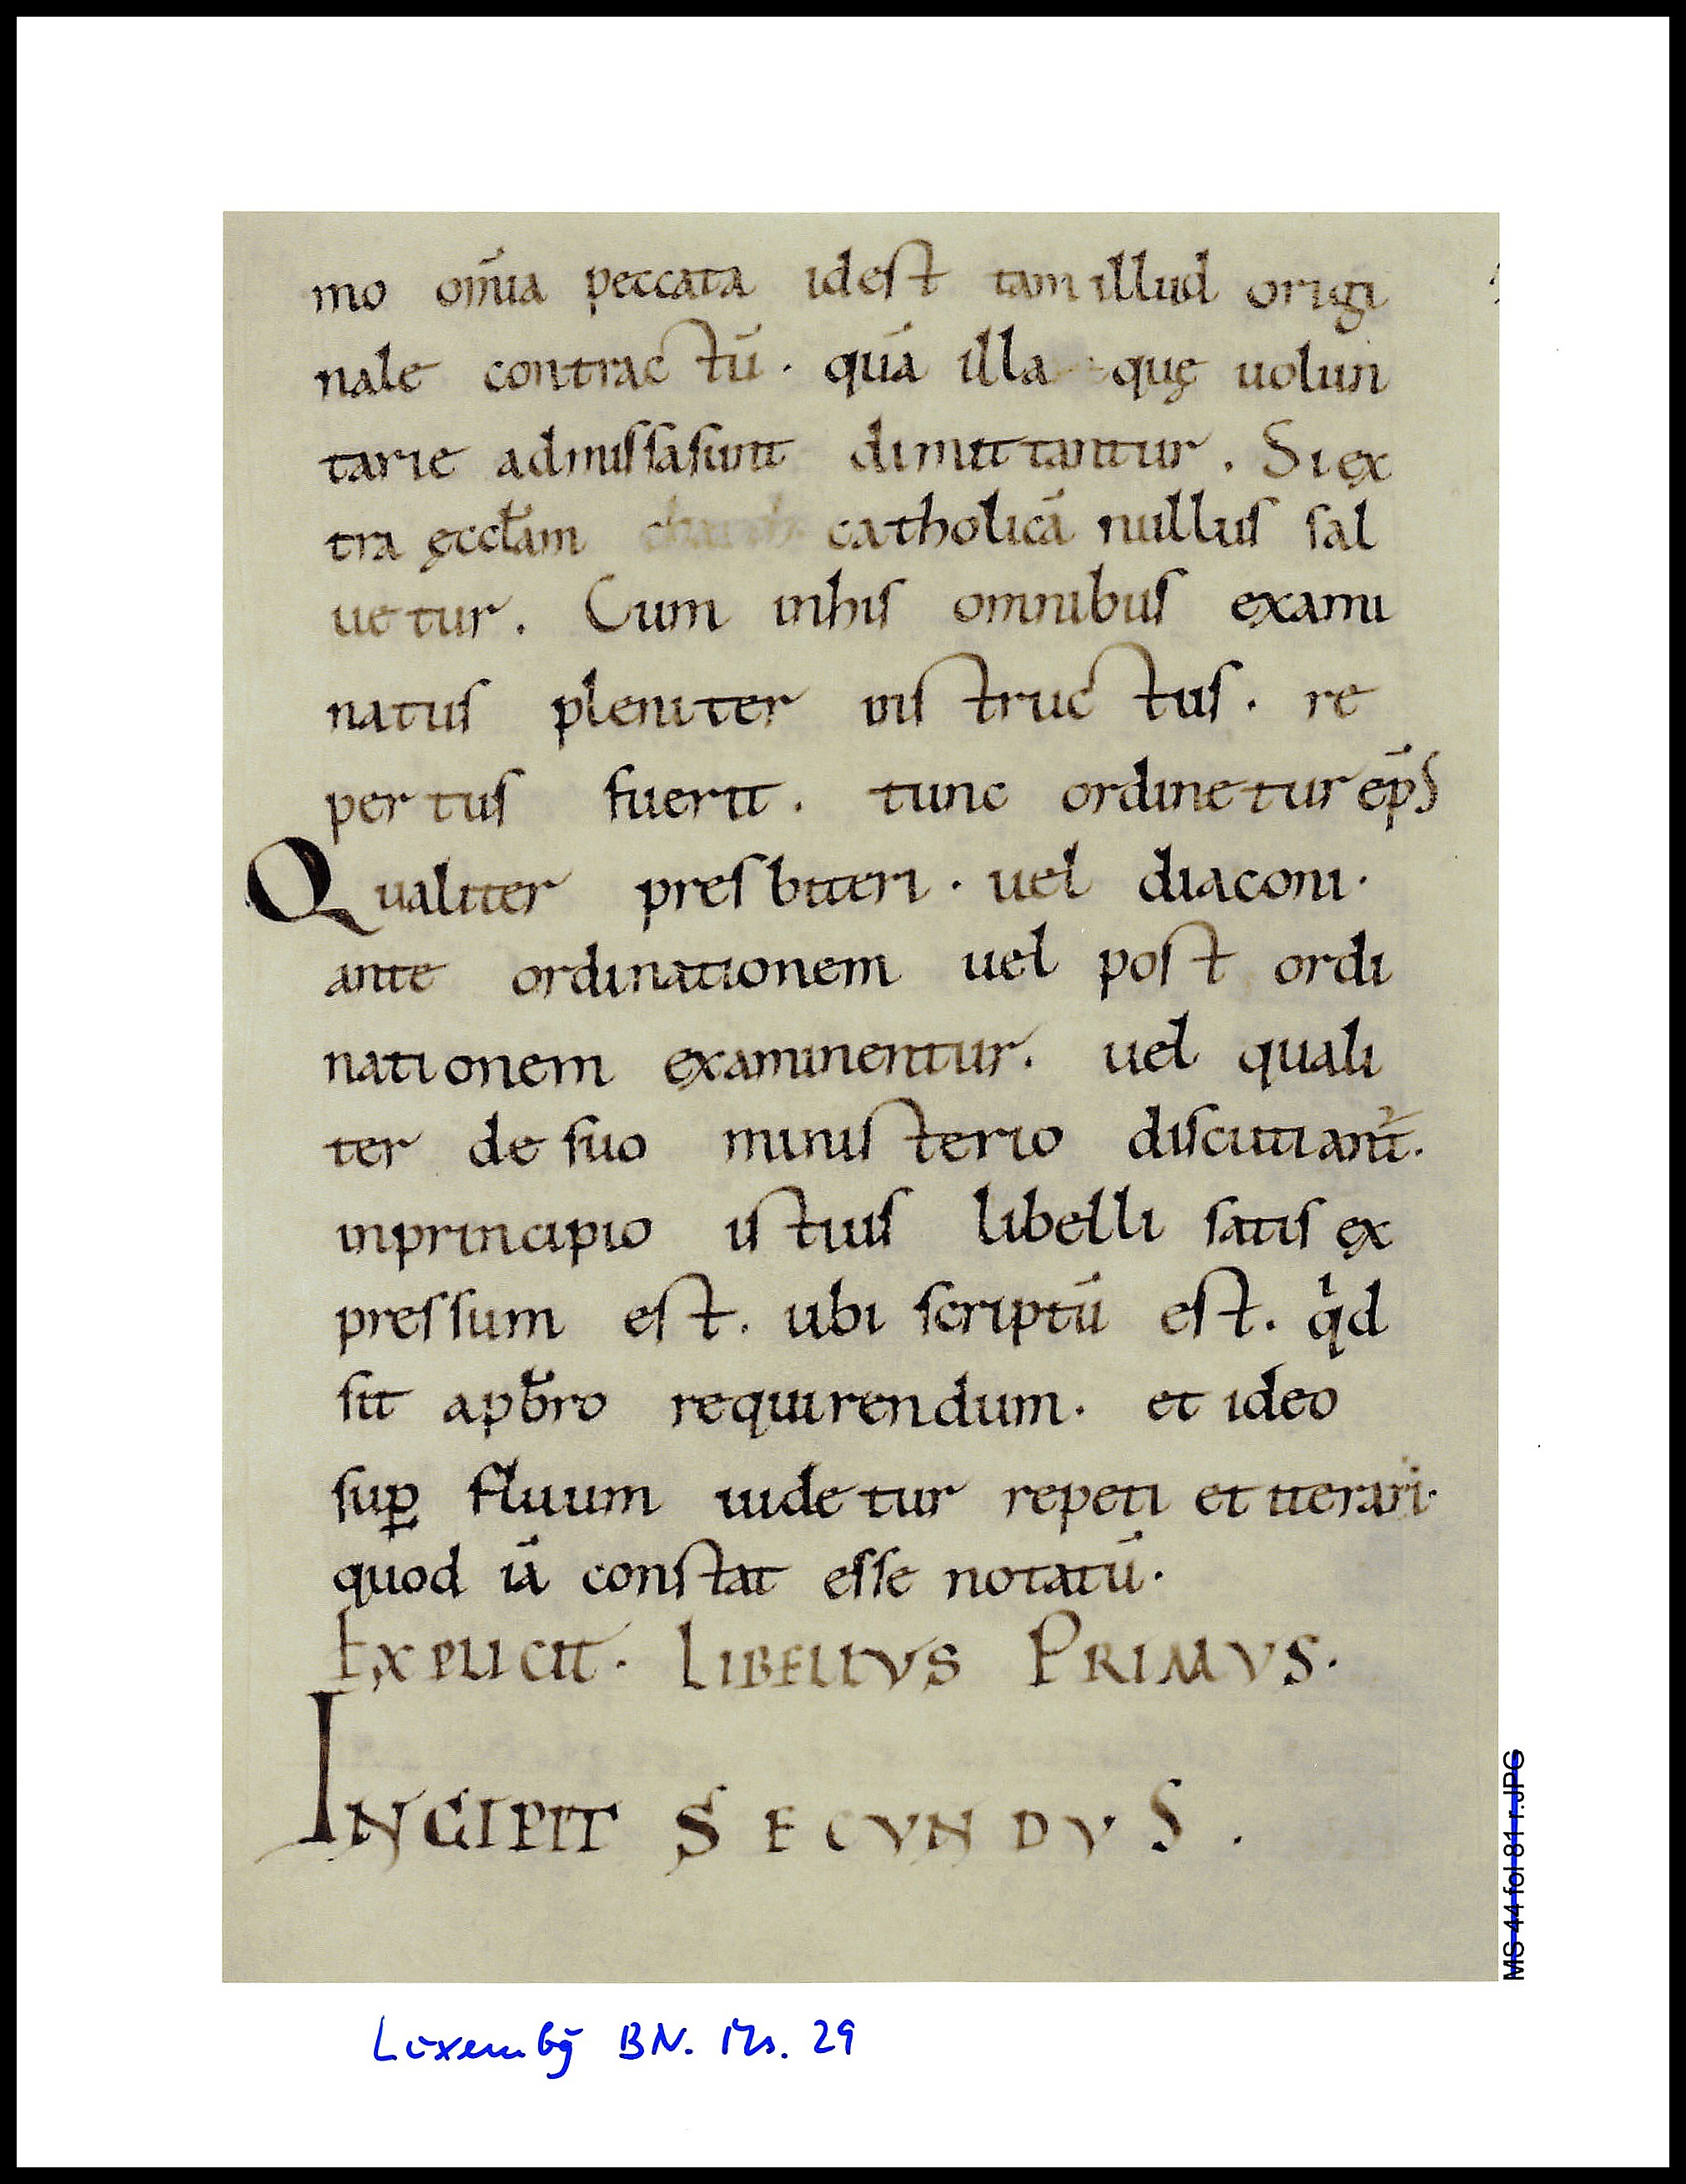 mo om̄ia peccata idest tam illud origi
nale contractū. quā illa quę uolun
tarie admissasunt dimittantur. Si ex
tra ęcclām catholicā nullus sal
uetur. Cum inhis omnibus exami
natus pleniter instructus. re
pertus fuerit. tunc ordinetur ep̄s
Qualiter presbiteri. uel diaconi.
ante ordinationem uel post ordi
nationem examinentur. uel quali
ter de suo ministerio discutiant᷑.
inprincipio istius libelli satis ex
pressum est. ubi scriptū est. qͥd
sit a pb̄ro requirendum. et ideo
suꝑfluum uidetur repeti et iterari.
quod iā constat esse notatū.
EXPLICIT. LIBELLVS PRIMVS.
INCIPIT SECVNDVS.
MS 44 fol 81 r.JPG
Luxembg BN. Ms. 29